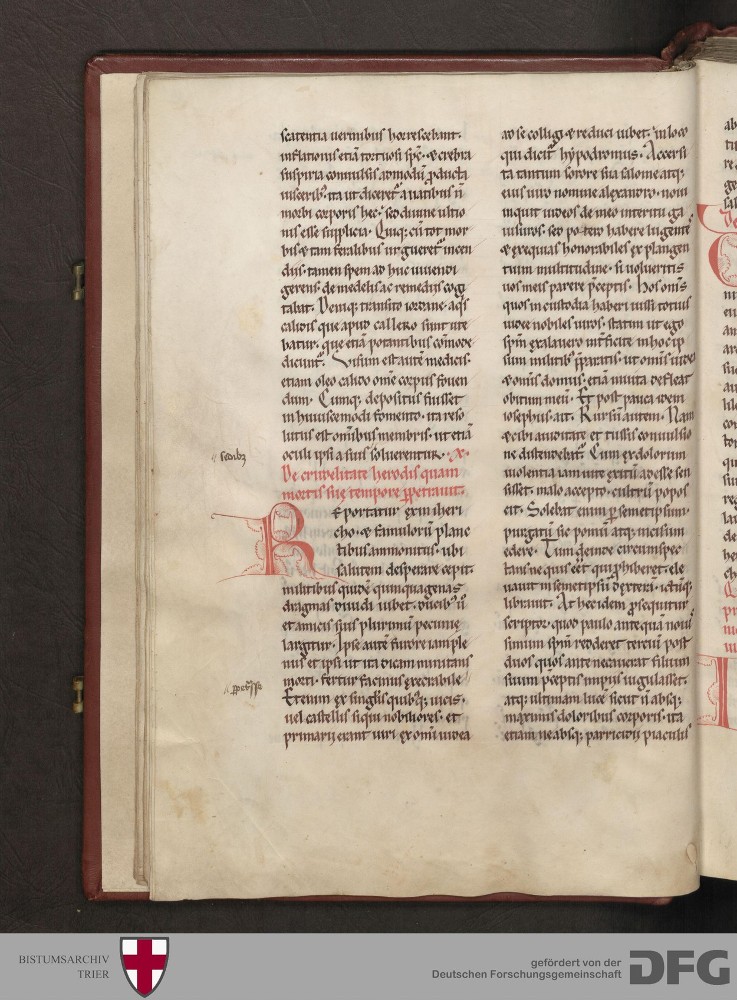 scatentia uermibus horrescebant.
inflationis etiā tortuosi spc̄. & crebra
suspiria conuulsis admodū p̱ducta
uisceribus. ita ut diceret᷑ a uatibus n̄
morbi corporis hec. sed diuine ultio
nis esse supplicia. Quiq; cū tot mor
bis & tam feralibus urgueret᷑ incen
diis. tamen spem ad huc uiuendi
gerens. de medelis ac remediis cogi
tabat. Deniq; transito iordane. aqs
calidis que apud calleao sunt ute
batur. que etiā potantibus cōmode
dicunt᷑. Visum est autē medicis.
etiam oleo calido omē corpus fouen
dum. Cumq; depositus fuisset
in huiuscemodi fomento. ita reso
lutus est omībus membris. ut etiā
sedibꝫ
oculi ipsi a suis soluerentur. x.
De crudelitate herodis quam
mortis sue tempore ꝑpetrauit.
Reportatur exin iheri
cho. & famulorū planc
tibus ammonitus. ubi
salutem desperare cepit.
militibus quidē quinquagenas
dragmas diuidi iubet. ducibꝰ ū
et amicis suis plurimū pecunie
largitur. Ipse autē furore iam ple
nus et ipsi ut ita dicam minitans
morti. fertur facinus execrabile
Etenim ex singlis quibꝰq; uicis.
uel castellis siqui nobiliores. et
primarii erant uiri ex omī iudea
ad se colligi & reduci iubet. in loco
qui dicit᷑ hypodromus. Accersi
ta tantum sorore sua salome atq;
eius uiro nomine alexandro. noui
inquit iudeos de meo interitu ga
uisuros. sed potero habere lugente
& exequias honorabiles ex plangen
tium multitudine. si uolueritis
uos meis parere p̄ceptis. Hos om̄s
quos in custodia haberi iussi totius
iudee nobiles uiros. statim ut ego
spm̄ exalauero interficite in hoc ip
sum militibꝰ p̄paratis. ut omīs iude
& omīs domus. etiā inuita defleat
obitum meū. Et post pauca idem
iosephus. ait. Rursū autem. Nam
& cibi auiditate et tussis conuulsio
ne distendebat᷑. Cum ex dolorum
uiolentia iam iāte exitū adesse sen
sisset. malo accepto. cultrū popos
cit. Solebat enim ꝑ semetipsum
purgatū sic pomū atq; incisum
edere. Tum deinde circumspec
tans ne quis eēt qui ꝓhiberet. ele
uauit in semetipsū dexterā. ictūq;
librauit. At hec idem ꝓsequitur
scriptor. quod paulo ante quā noui
simum spm̄ redderet terciū post
duos quos ante necauerat filium
suum p̄ceptis impiis iugulasset.
atq; ultimam lucē sicut n̄ absq;
maximis doloribus corporis. ita
etiam ne absq; parricidii piaculis
BISTUMSARCHIV
TRIER
gefördert von der
Deutschen Forschungsgemeinschaft
DFG